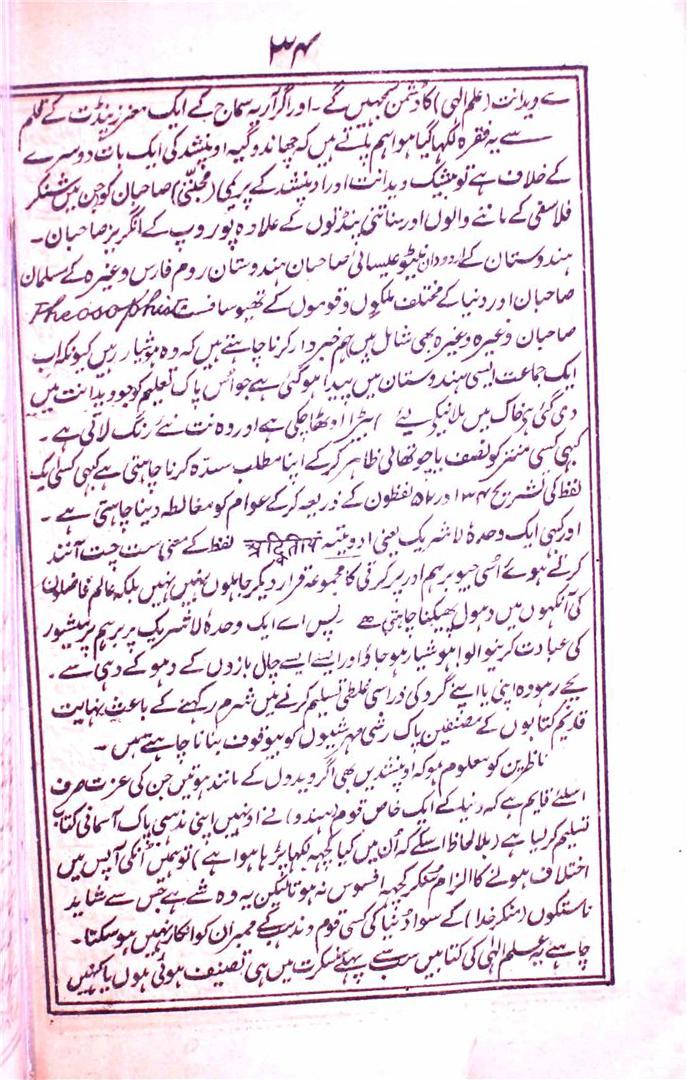 ۳۴
سے ویدانت (علم الٰہی) کا دشمن سمجہیں گے۔ اور اگر آریہ سماج کے ایک معزز پنڈت کے قلم
سے یہ فقرہ لکہا گیا ہوا ہم پاتے ہیں کہ چھاندوگیہ اوپنشد کی ایک بات دوسرے
کے خلاف ہے تو بیشک ویدانت اور اوپنشد کے پریمی (مجتبیٰ) صاحبان کو جن میں شنکر
فلاسفی کے ماننے والوں اور سناتنی پنڈتوں کے علاوہ یوروپ کے انگریز صاحبان۔
ہندوستان کے اردودان نیٹیو عیسائی صاحبان ہندوستان روم فارس وغیرہ کے مسلمان
صاحبان اور دنیا کے مختلف ملکوں و قوموں کے تھیوسافسٹ Theosophist
صاحبان وغیرہ وغیرہ بھی شامل ہیں ہم خبردار کرنا چاہتے ہیں کہ وہ ہوشیار رہیں کیونکہ اب
ایک جماعت ایسی ہندوستان میں پیدا ہو گئی ہے جو اُس پاک تعلیم کو جو ویدانت میں
دی گئی ہے خاک میں ملانیکے لیئے بیڑا اوٹھا چکی ہے اور وہ نت نئے رنگ لاتی ہے۔
کبہی کسی منتر کو نصف یا چوتھائی ظاہر کرکے اپنا مطلب سدہ کرنا چاہتی ہے کبہی کسی ایک
لفظ کی تشریح ۳۴ اور ۵۲ لفظون کے ذریعہ کرکے عوام کو مغالطہ دینا چاہتی ہے۔
اور کبہی ایک وحدہٗ لاشریک یعنی ادویتیہ अद्वितीय لفظ کے معنی ست چت آنند
کرتے ہوئے اُسی جیو برہم اور پرکرتی کا مجموعہ قرار دیکر جاہلوں نہیں نہیں بلکہ عالم فاضلوں
کی آنکہوں میں دہول پھیکنا چاہتی ہے پس اے ایک وحدہٗ لاشریک پر برہم پرمیشور
کی عبادت کرنیوالو! ہوشیار ہو جاؤ اور ایسے ایسے چال بازوں کے دہوکے دہی سے۔
بچے رہو وہ اپنی یا اپنے گرو کی ذرا سی غلطی تسلیم کرنے میں شرم رکہنے کے باعث نہایت
قدیم کتابوں کے مصنفین پاک رشی مہرشیوں کو بیوقوف بنانا چاہتے ہیں۔
ناظرین کو معلوم ہو کہ اوپنشدیں بھی اگر ویدوں کے مانند ہوتیں جن کی عزت صرف
اسلئے قایم ہے کہ دنیا کے ایک خاص قوم (ہندو) نے اونہیں اپنی مذہبی پاک آسمانی کتاب
تسلیم کر لیا ہے (بلا لحاظ اسکے کہ اُن میں کیا کچہہ لکہا پڑہا ہوا ہے) تو ہمیں اُنکی آپس میں
اختلاف ہونے کا الزام سنکر کچہہ افسوس نہ ہوتا لیکن یہ وہ شے ہے جس سے شاید
ناستکوں (منکر خدا) کے سوا دُنیا کی کسی قوم و مذہب کے ممبران کو انکار نہیں ہو سکتا۔
چاہے یہ علم الٰہی کی کتابیں سب سے پہلے سنسکرت میں ہی تصنیف ہوئی ہوں یا کہیں